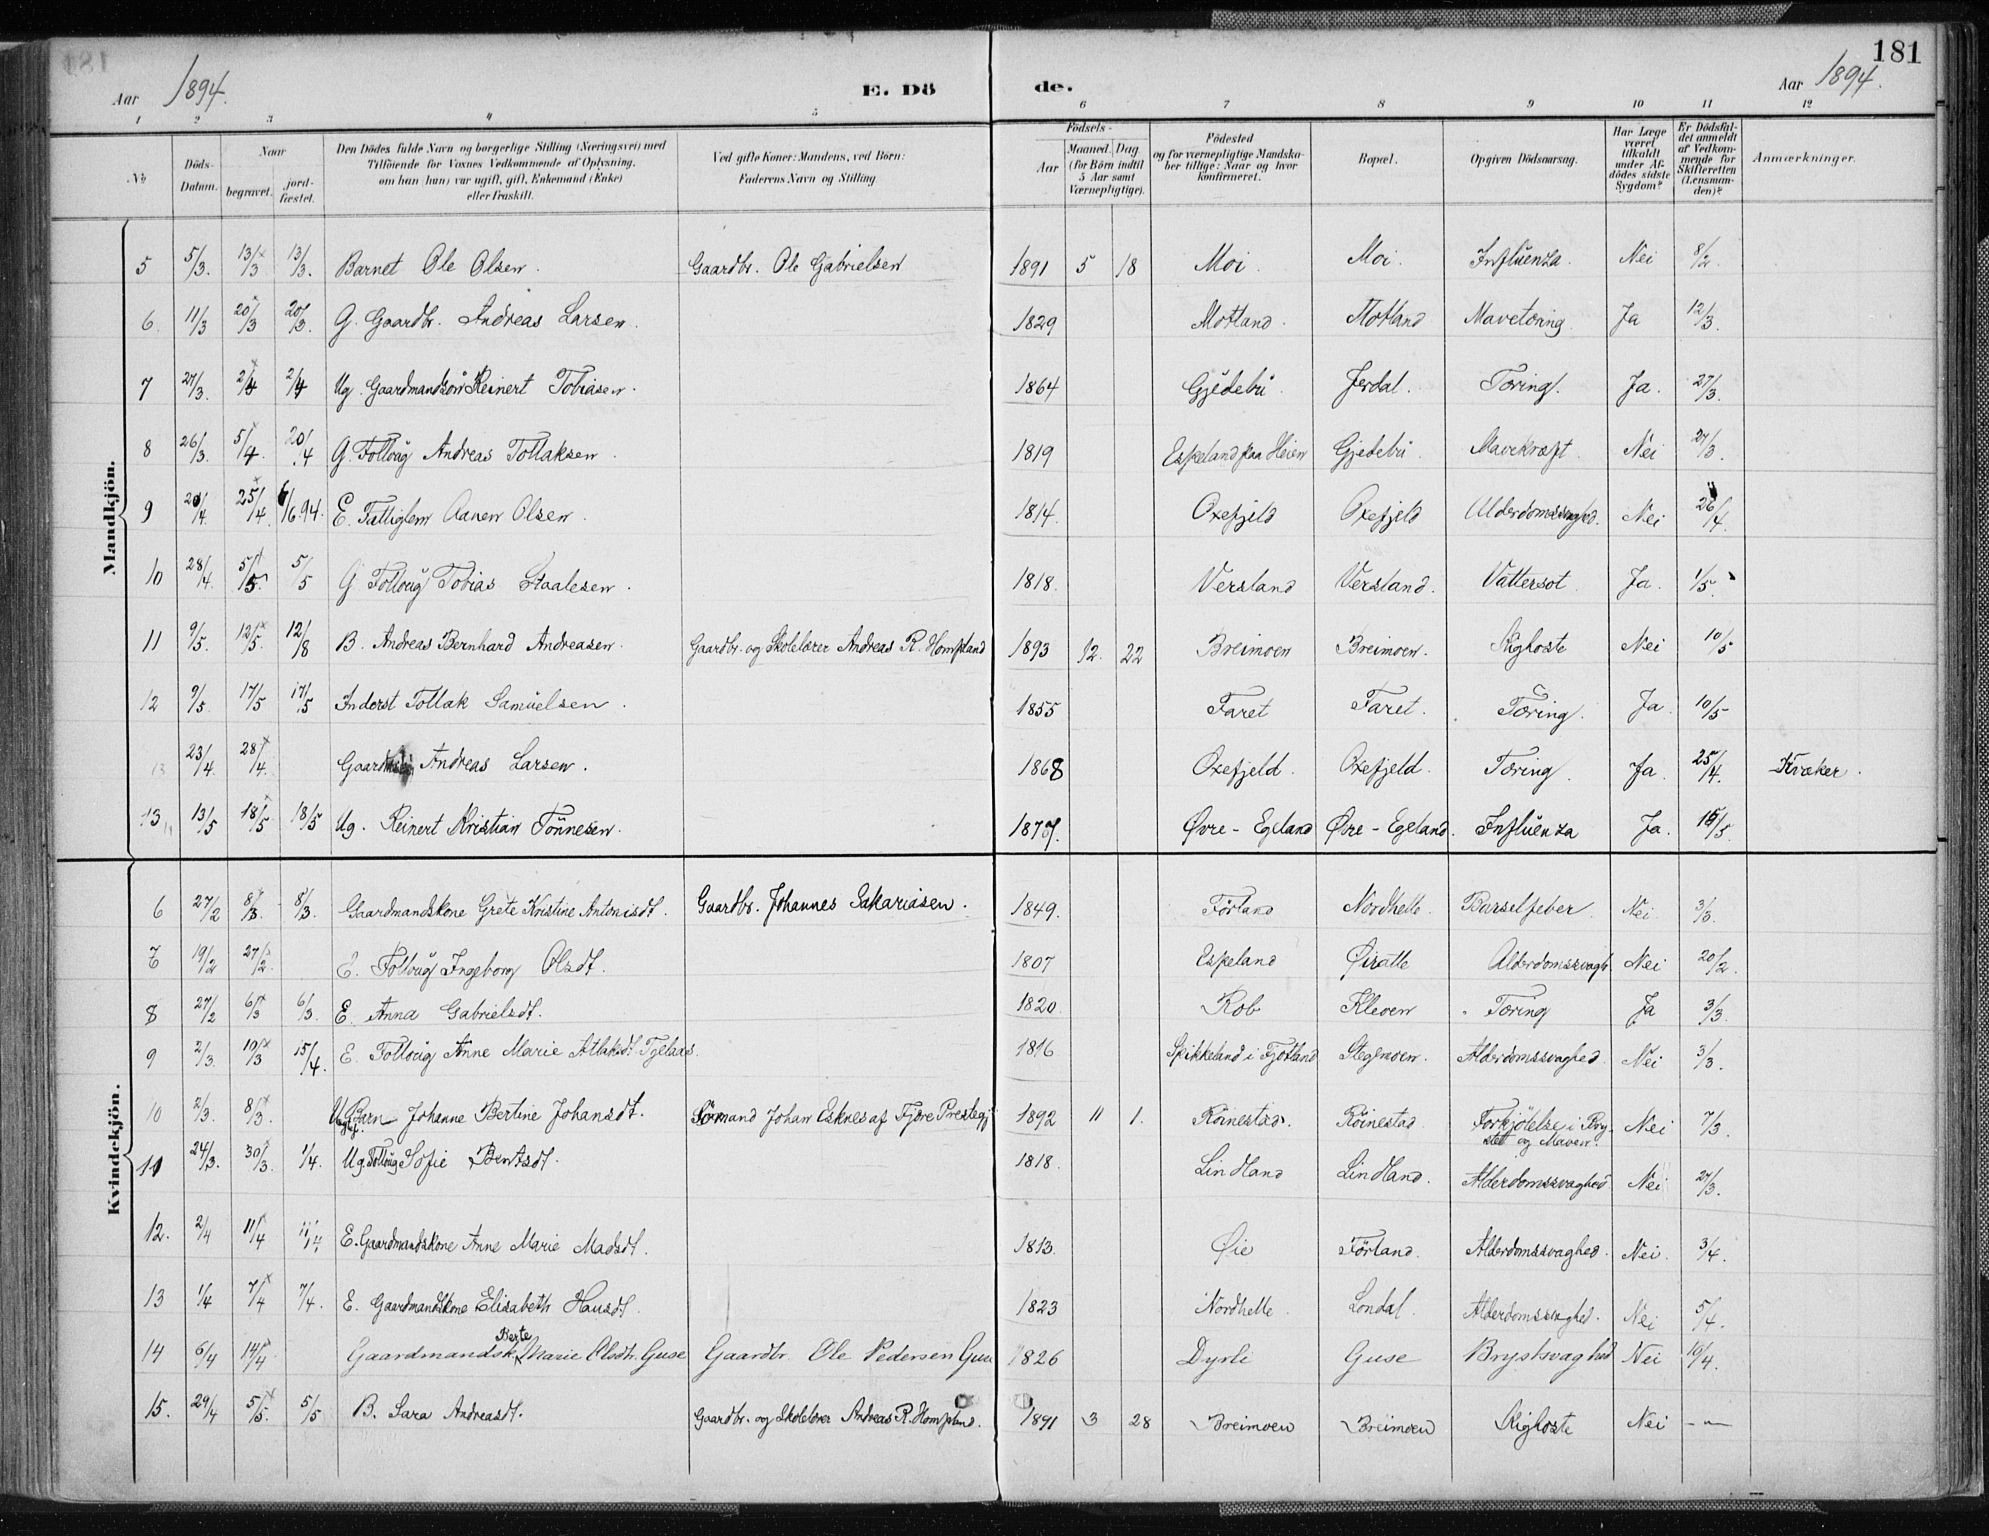 181
Aar 1894.
E. Dö
de.
Aar 1894.
1 2 3 4 5 6 7 8 9 10 11 12
№
Döds-Datum.
Naar
begravet. jordfæstet.
Den Dödes fulde Navn og borgerlige Stilling (Næringsvei) med
Tilföiende for Voxnes Vedkommende af Oplysning,
om han (hun) var ugift, gift, Enkemand (Enke)
eller fraskilt.
Ved gifte Koner: Mandens, ved Börn:
Faderens Navn og Stilling
Födsels-
Aar Maaned. Dag
(for Börn indtil 5 Aar samt Værnepligtige).
Födested
og for værnepligtige Mandskaber tillige: Naar og hvor konfirmeret.
Bopæl.
Opgiven Dödsaarsag.
Har Læge været tilkaldt under Afdödes sidste Sygdom?
Er Dödsfaldet anmeldt af Vedkommende for Skifteretten (Lensmanden)?
Anmærkninger.
Mandkjön.
5 5/3. 13/3 13/3. Barnet Ole Olsen. Gaardbr. Ole Gabrielsen 1891 5 18 Moi. Moi. Influenza. Nei 8/2.
6. 11/3 20/3 20/3. G. Gaardbr. Andreas Larsen. 1829 Motland. Motland Mavetæring. Ja 12/3.
7 27/3. 2/4 2/4 Ug. Gaardmandsön Reinert Tobiasen. 1864 Gjedebu. Jerdal. Tæring. Ja. 27/3.
8 26/3. 5/4. 20/4 G. Folloug Andreas Tollaksen. 1819 Espeland paa Heien Gjedebu. Mavekræft. Nei 27/3.
9 20/4. 25/4. 6/6.94. E. Fattiglem Aanen Olsen. 1814. Oxefjeld Oxefjeld Alderdomssvaghed. Nei 26/4.
10 28/4. 5/5. 5/5 G. Folloug Tobias Staalesen. 1818. Versland Versland. Vattersot. Ja. 1/5.
11 9/5. 12/5. 12/8 B. Andreas Bernhard Andreasen. Gaardbr. og Skolelærer Andreas R. Hompland 1893 12. 22 Breimoen Breimoen. Kighoste Nei 10/5
12 9/5. 17/5 17/5 Inderst Tollak Samuelsen. 1855 Faret Faret. Tæring. Ja 10/5
13 23/4. 28/4. Andreas Larsen. 1868 Oxefjeld. Oxefjeld. Tæring. Ja. 25/4. Kvæker.
13 13/5 18/5 18/5 Ug. Reinert Kristian Tönnesen. Øvre-Egeland Øvre-Egeland. Influenza Ja. 15/5.
Kvindekjön.
6 27/2 8/3. 8/3. Gaardmandskone Grete Kristine Antonisdt. Gaardbr. Johannes Sakariasen. 1849. Förland Nordhelle. Barselfeber. Nei 3/3.
7 19/2 27/2. E. Folloug Ingeborg Olsdt. 1807 Espeland Alderdomssvagh. Nei 20/2.
8 27/2 6/3 6/3. E. Anna Gabrielsdt. 1820. Rob Kleven Tæring Ja 3/3.
9 2/3. 10/3 15/4. E. Folloug Anne Marie Atlaksdt. 1816 Spikkeland i Fjotland Stegemoen. Alderdomssvaghed. Nei 3/3.
10 2/3. 8/3. Barn Johanne Bertine Johansdt. Sömand Johan Esknes af Fjære Prestegj. 1892 11 1. Röinestad. Röinestad Forkjölelse i Brystet og Maven. Nei 7/3.
11 24/3. 30/3. 1/4. Ug. Folloug Sofie Berntsdt. 1818. Lindland Lindland. Alderdomssvaghed Nei 27/3.
12. 2/4 11/4 11/4. E. Gaardmandskone Anne Marie Madsdt. 1813. Øie Förland. Alderdomssvaghed. Nei. 3/4.
13 1/4 7/4 7/4. E. Gaardmandskone Elisabeth Hansdt. 1823 Nordhelle Londal. Alderdomssvaghed. Nei 5/4.
14 6/4 14/4 Gaardmandsk. Berte Marie Olsdtr. Guse Gaardbr Ole Pedersen Guse 1826 Dyrli Guse Brystsvaghed Nei 10/4.
15. 29/4 5/5. 5/5 B. Sara Andreasdt. Gaardbr. og Skolelærer Andreas R. Hompland. 1891 3 28 Breimoen Breimoen Kighoste Nei - -